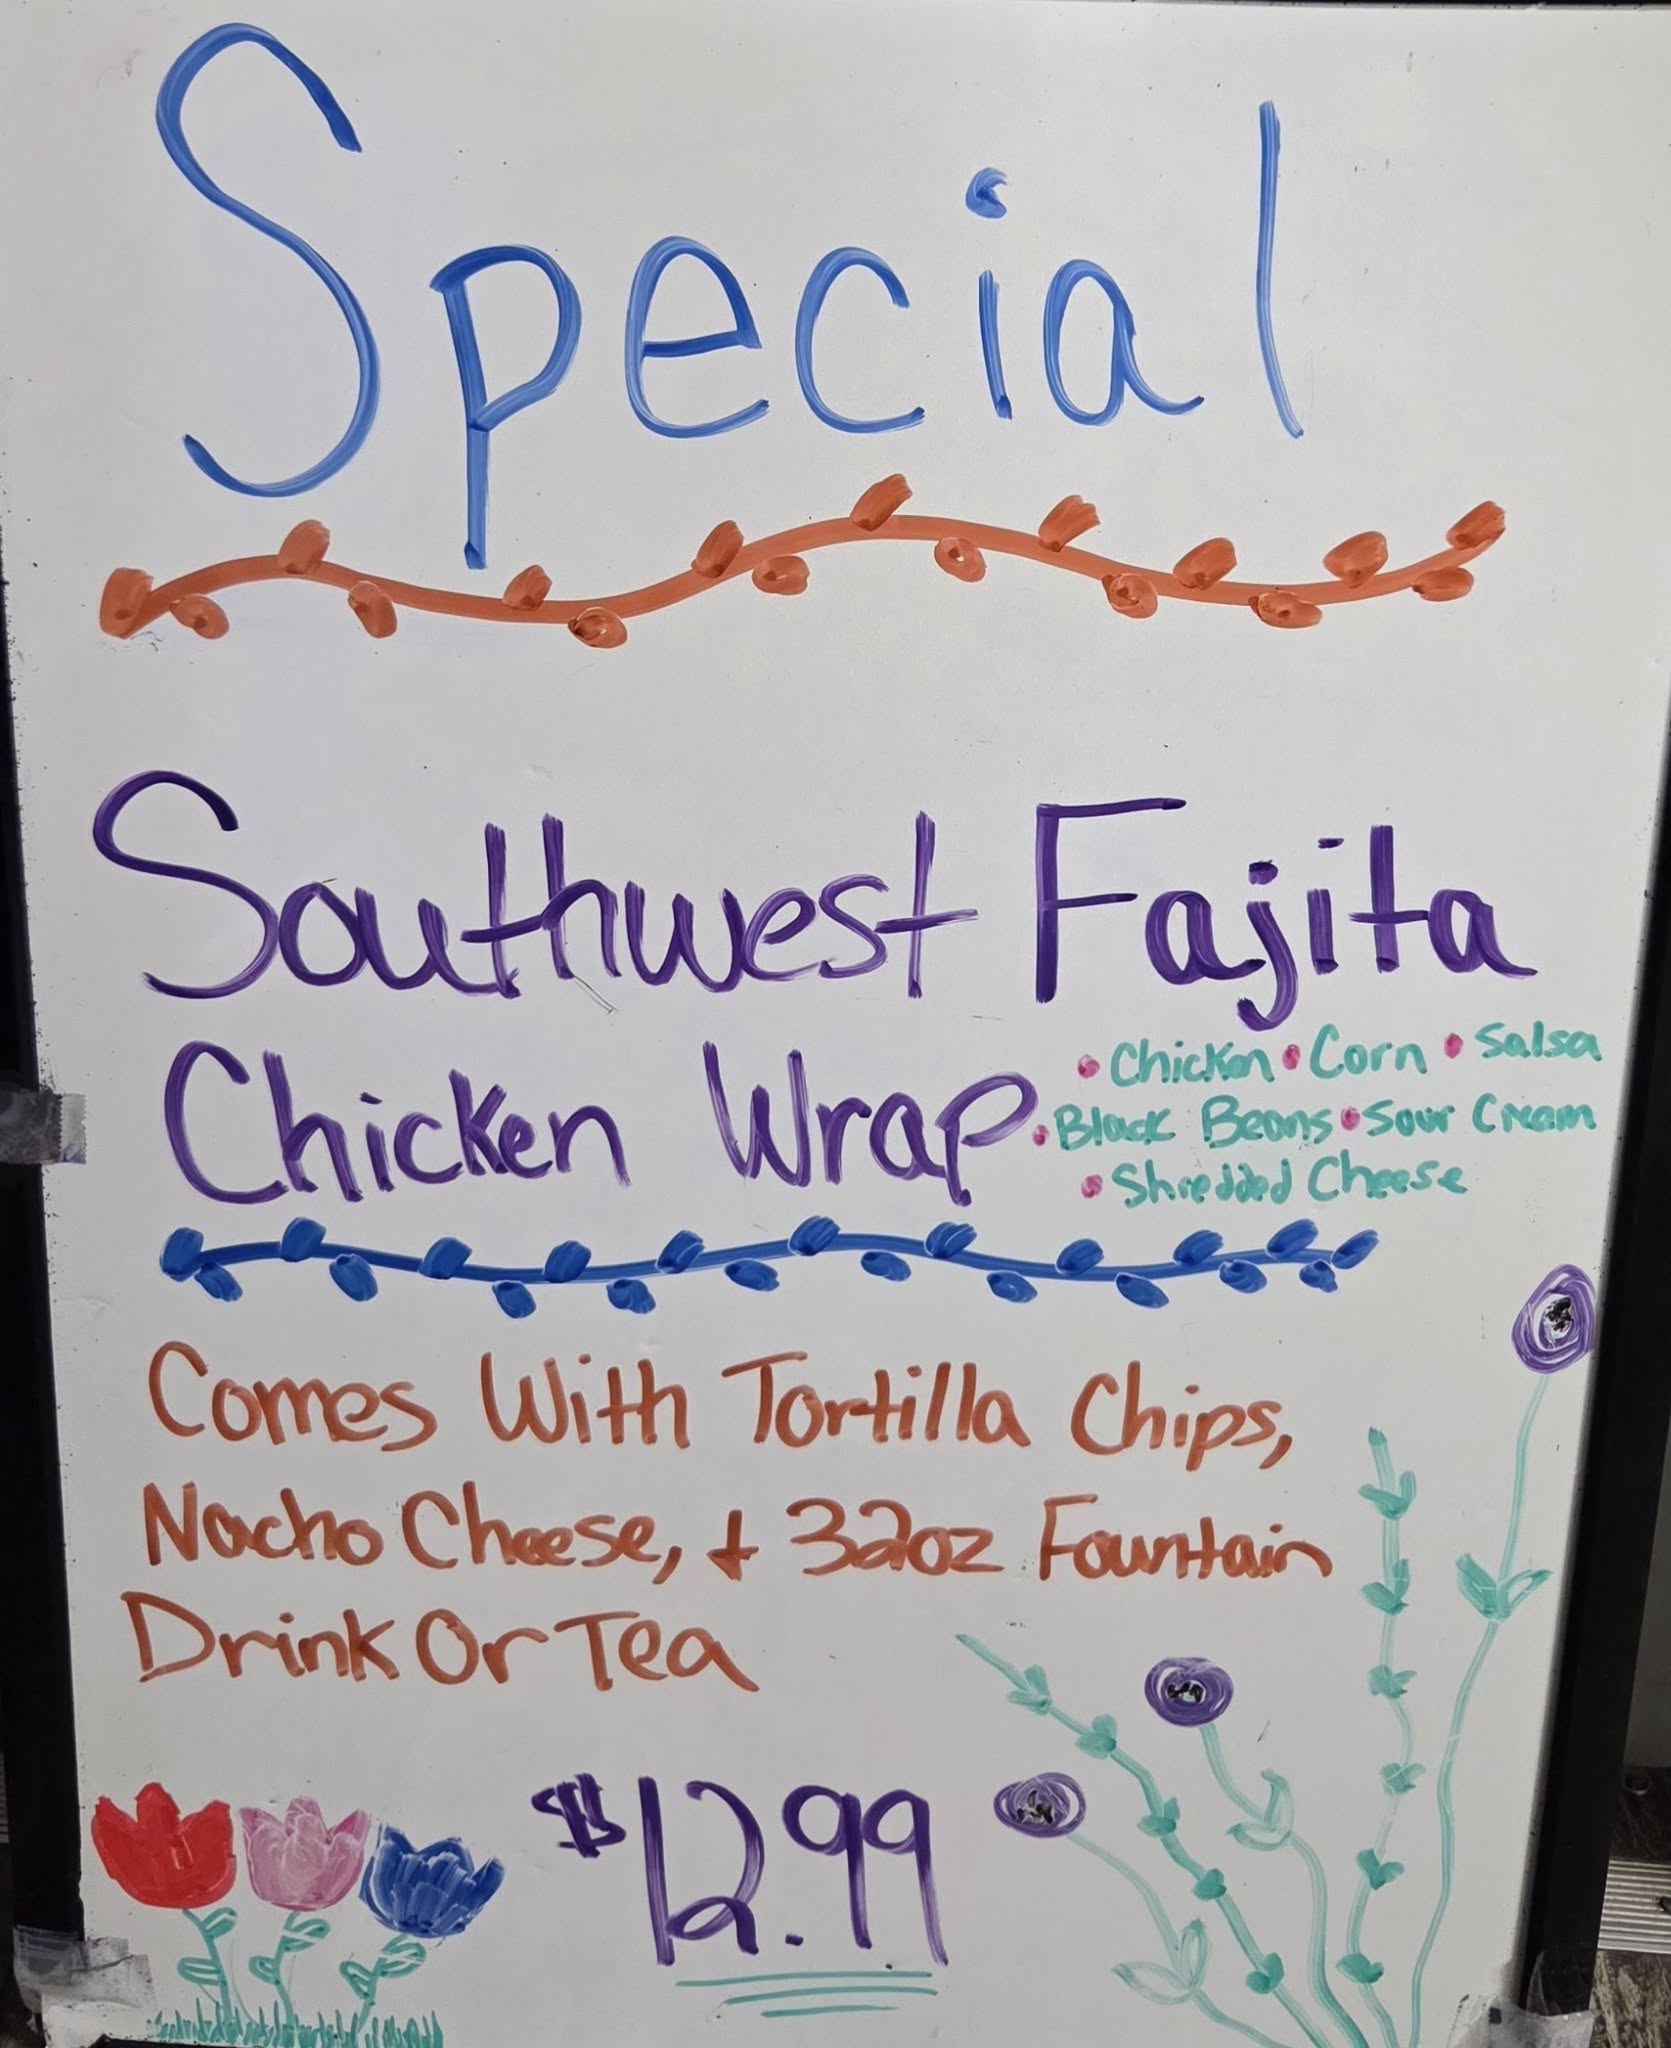 Special
Southwest Fajita
Chicken Wrap
• Chicken • Corn • Salsa
• Black Beans • Sour Cream
• Shredded Cheese
Comes With Tortilla Chips,
Nacho Cheese, + 32oz Fountain
Drink Or Tea
$12.99